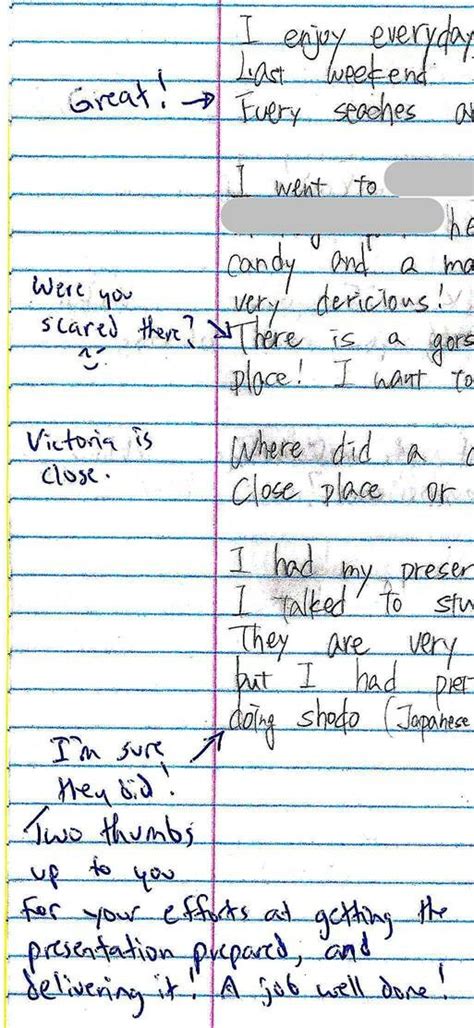 I enjoy everyday
Last weekend
Great! → Every seaches a
I went to
he
candy and a ma
Were you
very dericious!
scared there? There is a gors
place! I want to
Victoria is
close.
Where did a
Close place or
I had my presen
I talked to stu
They are very
but I had pre
doing shodo (Japanese
I'm sure
they did!
Two thumbs
up to you
for your efforts at getting the
presentation prepared, and
delivering it! A job well done!